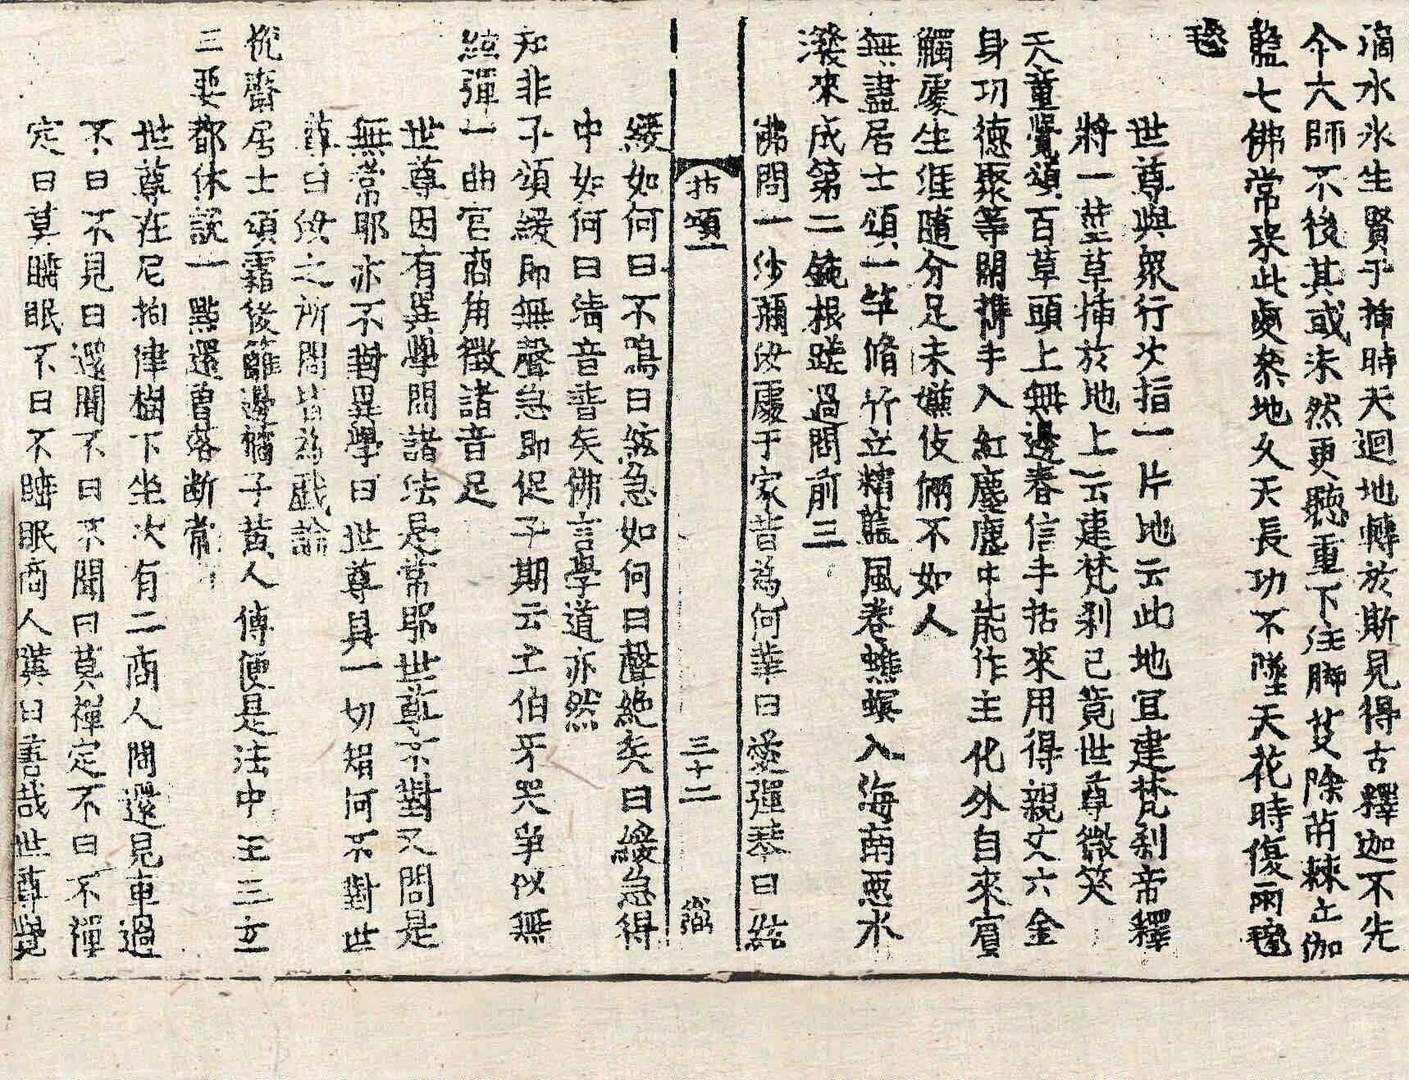 滴水氷生賢于揷時天迴地轉於斯見得古釋迦不先
今六師不後其或未然更聽重下注脚芟除荊棘立伽
藍七佛常來此處叅地久天長功不墜天花時復雨毿
毿
世尊與衆行次指一片地云此地宜建梵刹帝釋
將一莖草揷於地上云建梵刹已竟世尊微笑
天童覺頌百草頭上無邊春信手拈來用得親丈六金
身功德聚等閑携手入紅塵塵中能作主化外自來賓
觸處生涯隨分足未嫌伎倆不如人
無盡居士頌一竿脩竹立精藍風卷蟭螟入海南惡水
潑來成第二鈍根蹉過問前三
佛問一沙彌汝處于家昔爲何業曰愛彈琴曰絃
拈頌
三十二
緩如何曰不鳴曰絃急如何曰聲絶矣曰緩急得
中如何曰淸音普矣佛言學道亦然
知非子頌緩即無聲急即促子期云亡伯牙哭爭似無
絃彈一曲宮商角徵諸音足
世尊因有異學問諸法是常耶世尊不對又問是
無常耶亦不對異學曰世尊具一切智何不對世
尊曰汝之所問皆爲戱論
悅齋居士頌霜後籬邊橘子黃人傳便是法中王三玄
三要都休說一點還曾落斷常
世尊在尼拘律樹下坐次有二商人問還見車過
不曰不見曰還聞不曰不聞曰莫禪定不曰不禪
定曰莫睡眠不曰不睡眠商人嘆曰善哉世尊覺